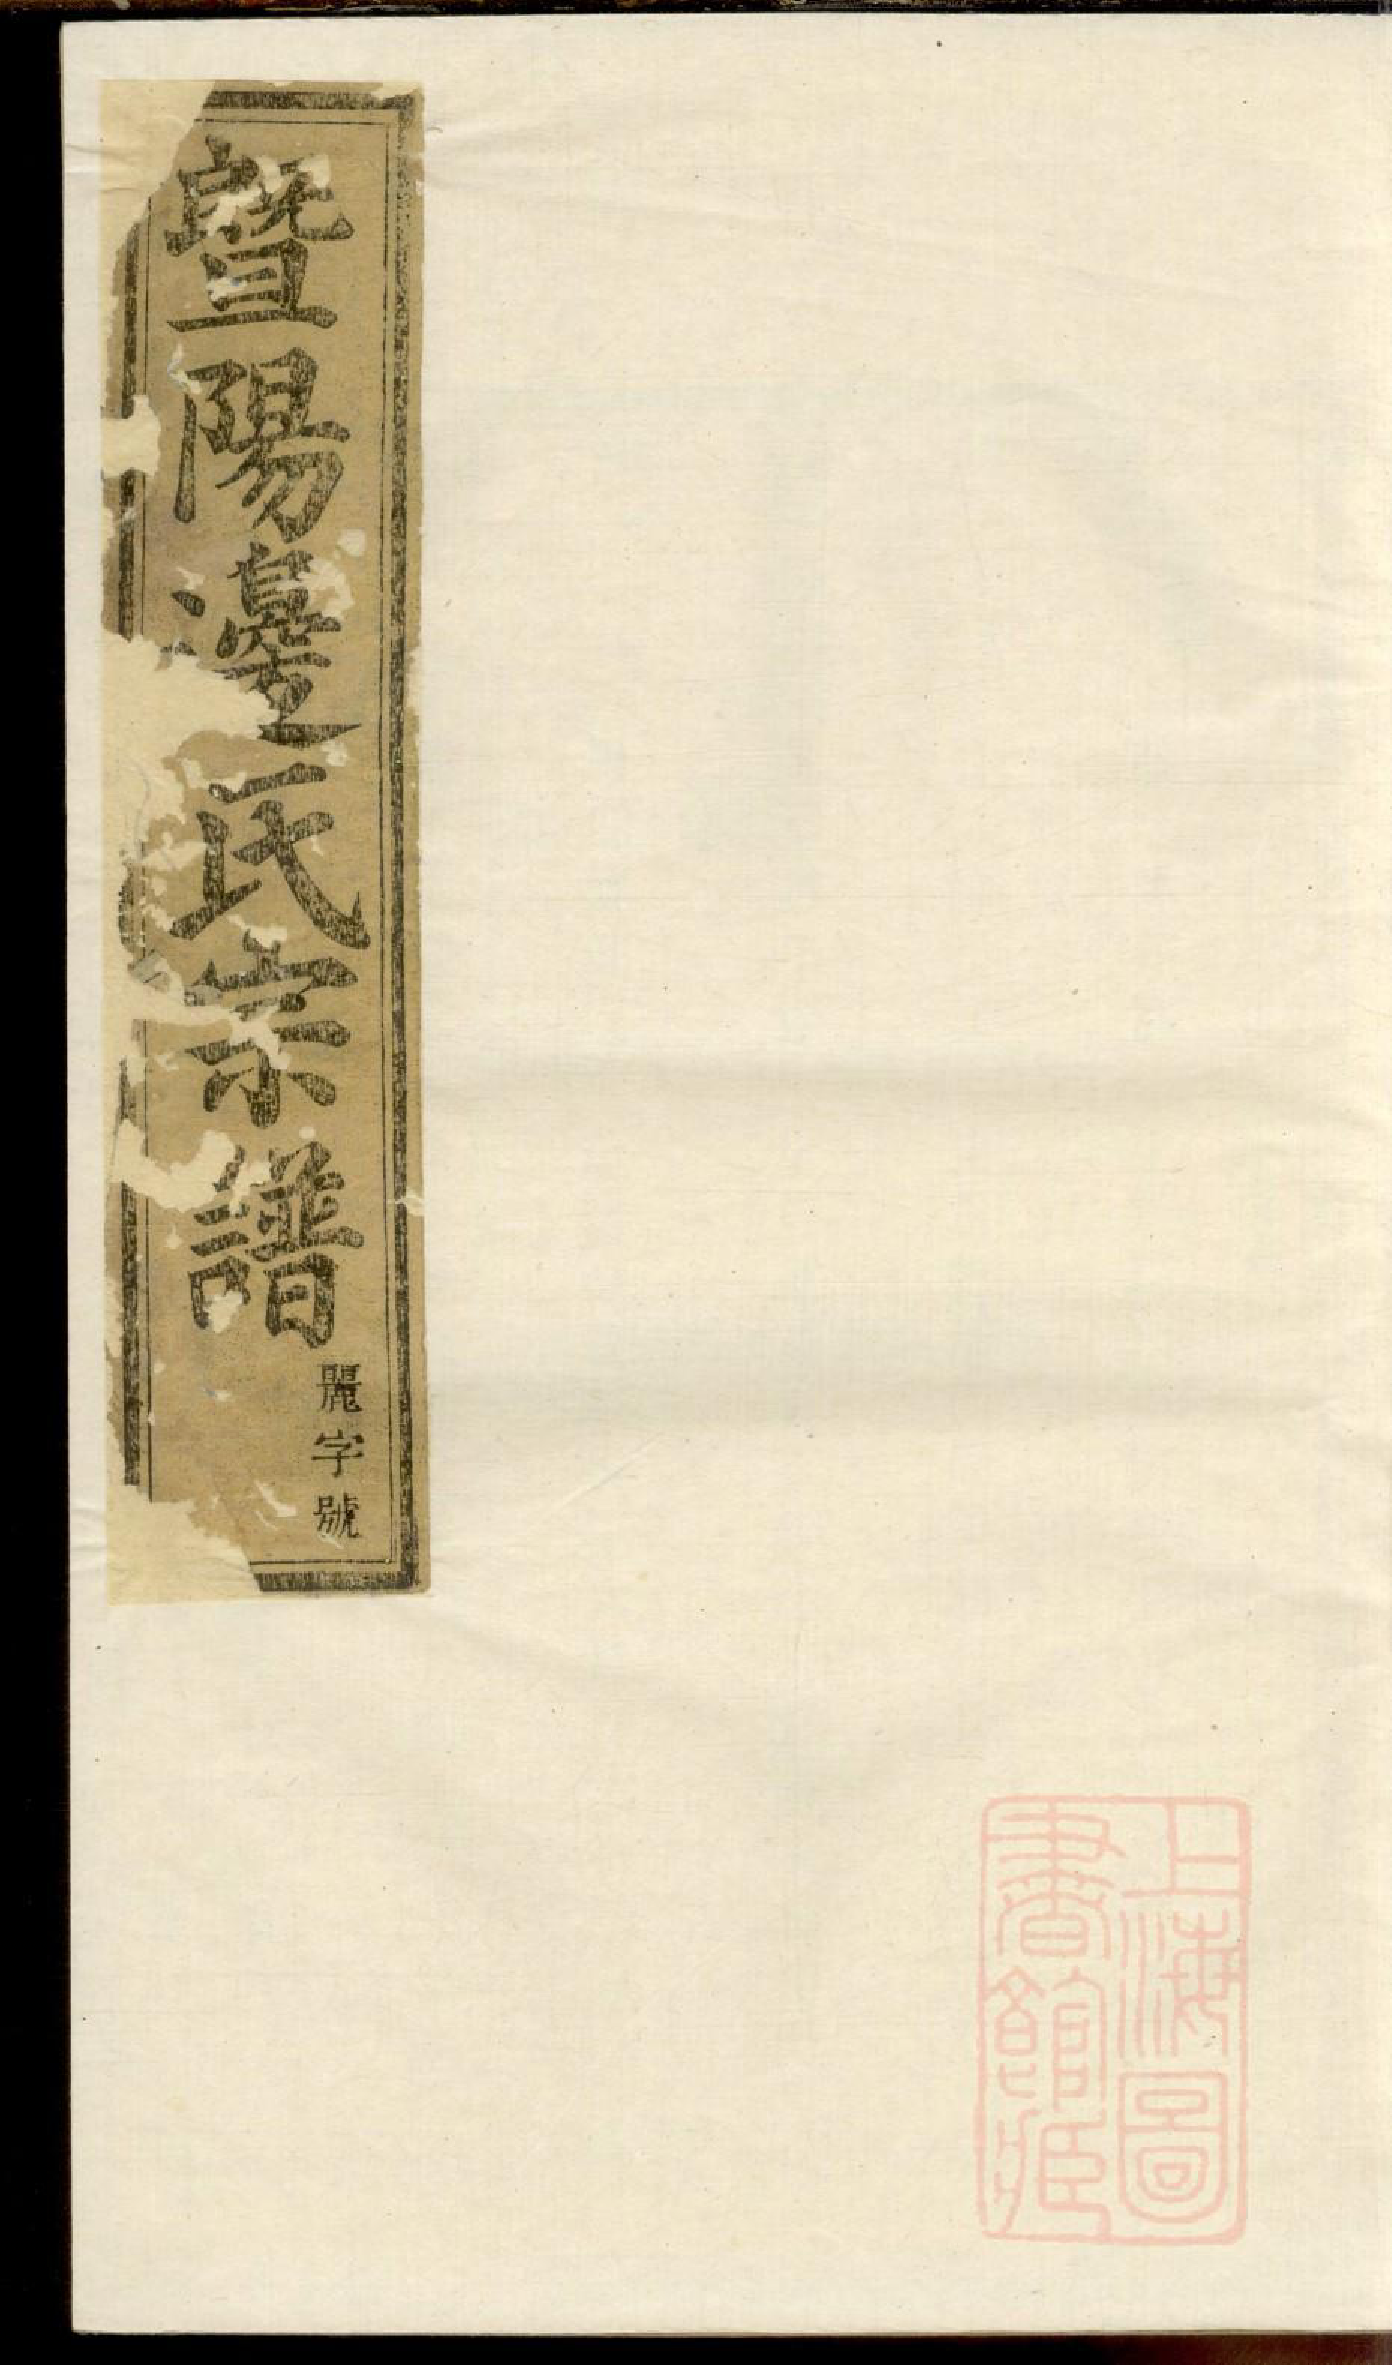 暨陽邊氏宗譜
麗字號
上海圖
書館藏